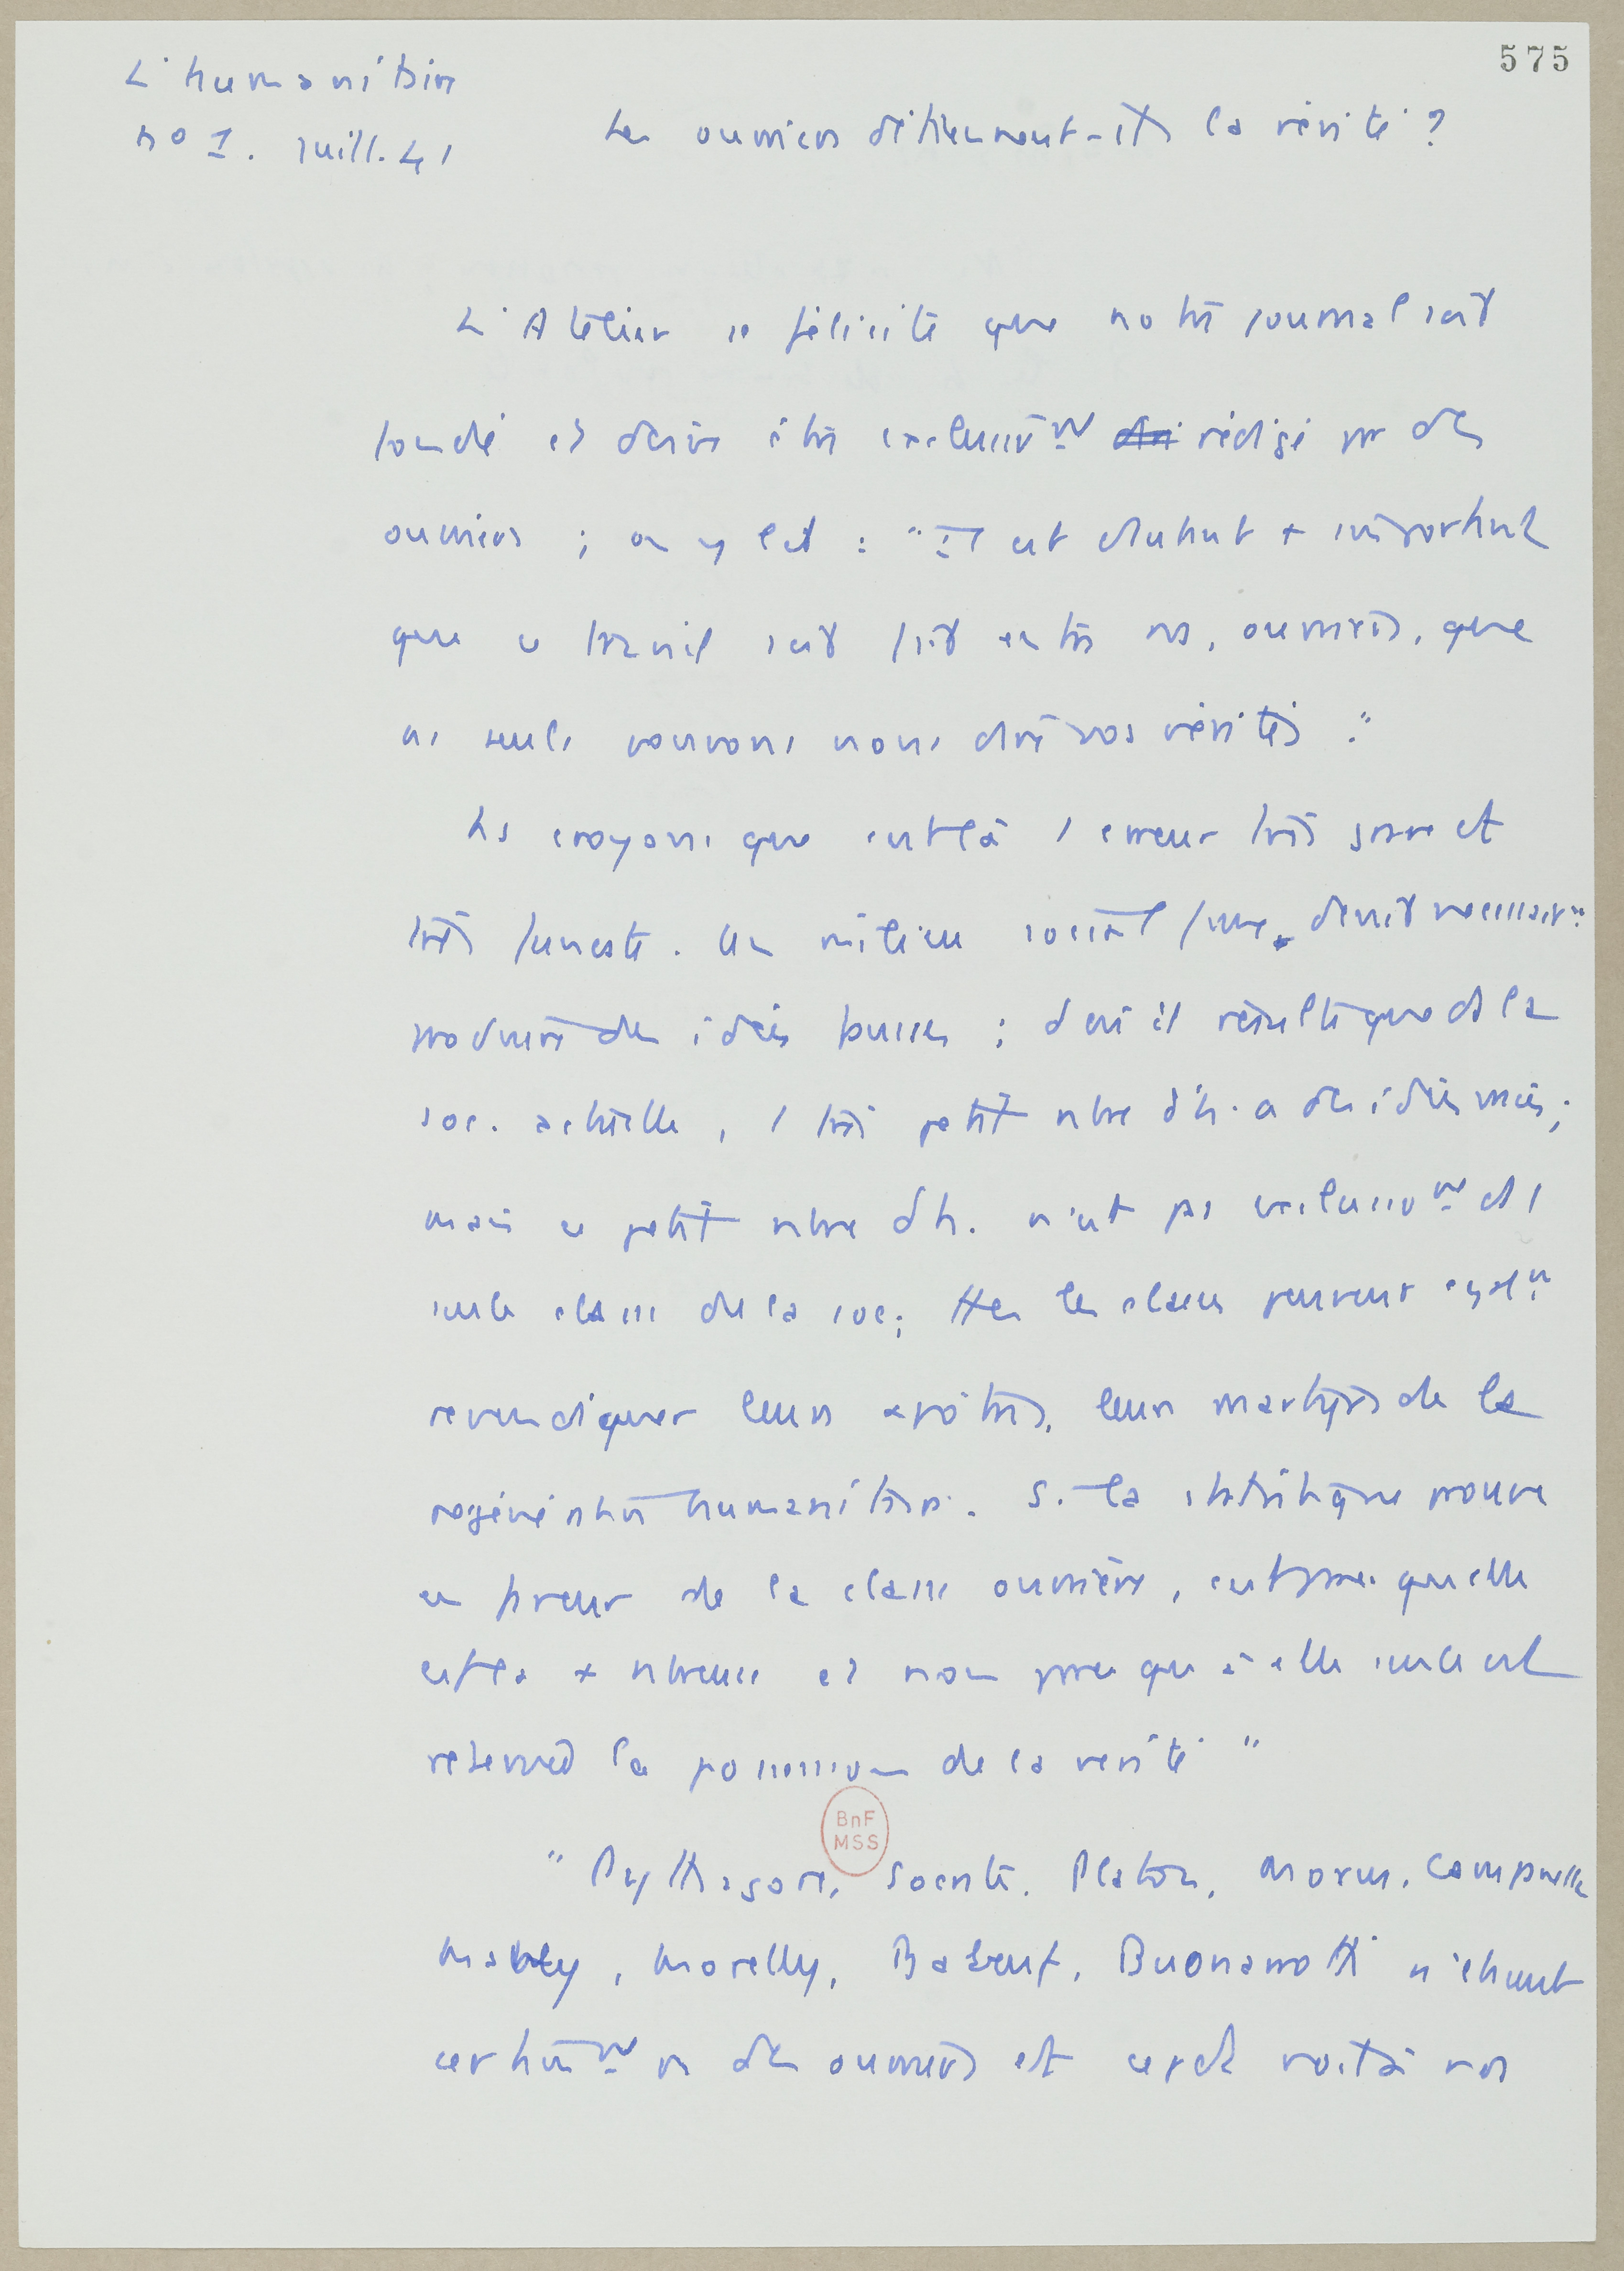 575
L'humanitaire
no 1. Juill. 41
Les ouvriers détiennent-ils la vérité ?
L'Atelier se félicite que notre journal soit
fondé et doive être exclusivmt rédigé par des
ouvriers ; on y lit : "Il est d'autant + important
que ce travail soit fait entre ns, ouvriers, que
ns seuls pouvons nous dire nos vérités."
Ns croyons que c'est là 1 erreur très grave et
très funeste. Un milieu social faux devait nécessairt
produire des idées fausses ; d'où il résulte que ds la
soc. actuelle, 1 très petit nbre d'h. a des idées vraies ;
mais ce petit nbre d'h. n'est pas exclusivmt ds 1
seule classe de la soc ; ttes les classes peuvent égalt
revendiquer leurs apôtres, leurs martyrs de la
régénération humanitaire. Si la statistique prouve
en faveur de la classe ouvrière, c'est parce qu'elle
est la + nbreuse et non parce qu'à elle seule est
réservée la possession de la vérité"
BnF
MSS
"Pythagore, Socrate, Platon, Morus, Campanella
Mably, Morelly, Babeuf, Buonarotti n'étaient
certainmt pas des ouvriers et cepdt voilà nos